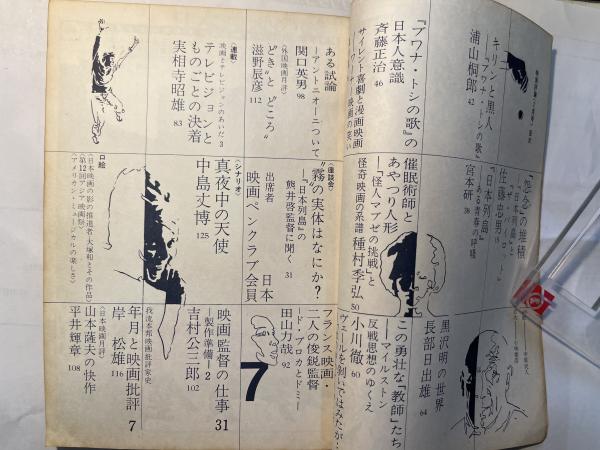 キリンと黒人
『ブワナ・トシの歌』
浦山桐郎 42
『ブワナ・トシの歌』の
日本人意識
斉藤正治 46
サイレント喜劇と漫画映画
『怨念』の堆積
『日本列島』と
佐藤忠男 18
『日本列島』
ある青春の呼嘯
宮本研 38
催眠術師と
あやつり人形
―『怪人マブゼの挑戦』と
怪奇映画の系譜
種村季弘 50
黒沢明の世界
長部日出雄 64
この勇壮な「教師」たち
―マイルストン
反戦思想のゆくえ
小川徹 60
ヴェールを剥いではみたが…
ある試論
―アントニオーニについて
関口英男 98
〈外国映画月評〉
どき〟と〝どころ〟
滋野辰彦 112
〈連載〉
映画とテレビジョンのあいだ 3
テレビジョンと
ものごとの決着
実相寺昭雄 83
〈座談会〉
〝霧〟の実体はなにか?
―『日本列島』の
熊井啓監督に聞く 31
出席者 日本
映画ペンクラブ会員
〈シナリオ〉
真夜中の天使
中島丈博 125
口絵
〈日本映画の影の推進者・大塚和とその作品〉
〈第12回アジア映画祭〉
〈アメリカン・ミュージカルの楽しさ〉
フランス映画・
二人の俊鋭監督
―ド・ブロカとドミー
田山力哉 92
7
映画監督の仕事 31
―製作準備―2
吉村公三郎 102
我流本邦映画批評家史
年月と映画批評 7
岸松雄 116
〈日本映画月評〉
山本薩夫の快作
平井輝章 108